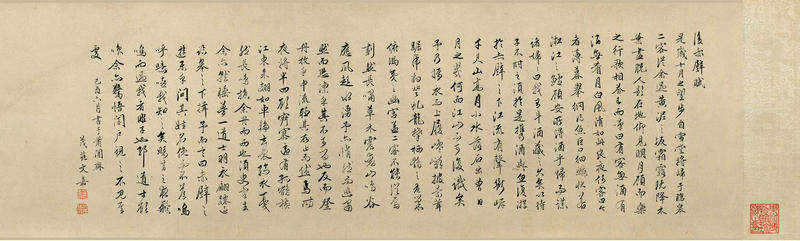 後赤壁賦
是歲十月之望步自雪堂將歸于臨皋
二客從余過黃泥之坂霜露既降木
葉盡脫人影在地仰見明月顧而樂
之行歌相答已而嘆曰有客無酒有
酒無肴月白風清如此良夜何客曰今
者薄暮舉網得魚巨口細鱗狀若
淞江之鱸顧安所得酒乎歸而謀
諸婦婦曰我有斗酒藏之久矣以待
子不時之須於是攜酒與魚復游
於赤壁之下江流有聲斷岸
千尺山高月小水落石出曾日
月之幾何而江山不可復識矣
予乃攝衣而上履巉巖披蒙茸
踞虎豹登虬龍攀棲鶻之危巢
俯馮夷之幽宮蓋二客不能從焉
劃然長嘯草木震動山鳴谷
應風起水湧予亦悄然而悲肅
然而恐凜乎其不可留也反而登
舟放乎中流聽其所止而休焉時
夜將半四顧寂寥適有孤鶴橫
江東來翅如車輪玄裳縞衣戛
然長鳴掠余舟而西也須臾客去
余亦就睡夢一道士羽衣翩躚過
臨皋之下揖予而言曰赤壁之
遊樂乎問其姓名俛而不答嗚
呼噫嘻我知之矣疇昔之夜飛
鳴而過我者非子也耶道士顧
笑余亦驚悟開戶視之不見其
處
己酉六月書于
茂苑文嘉